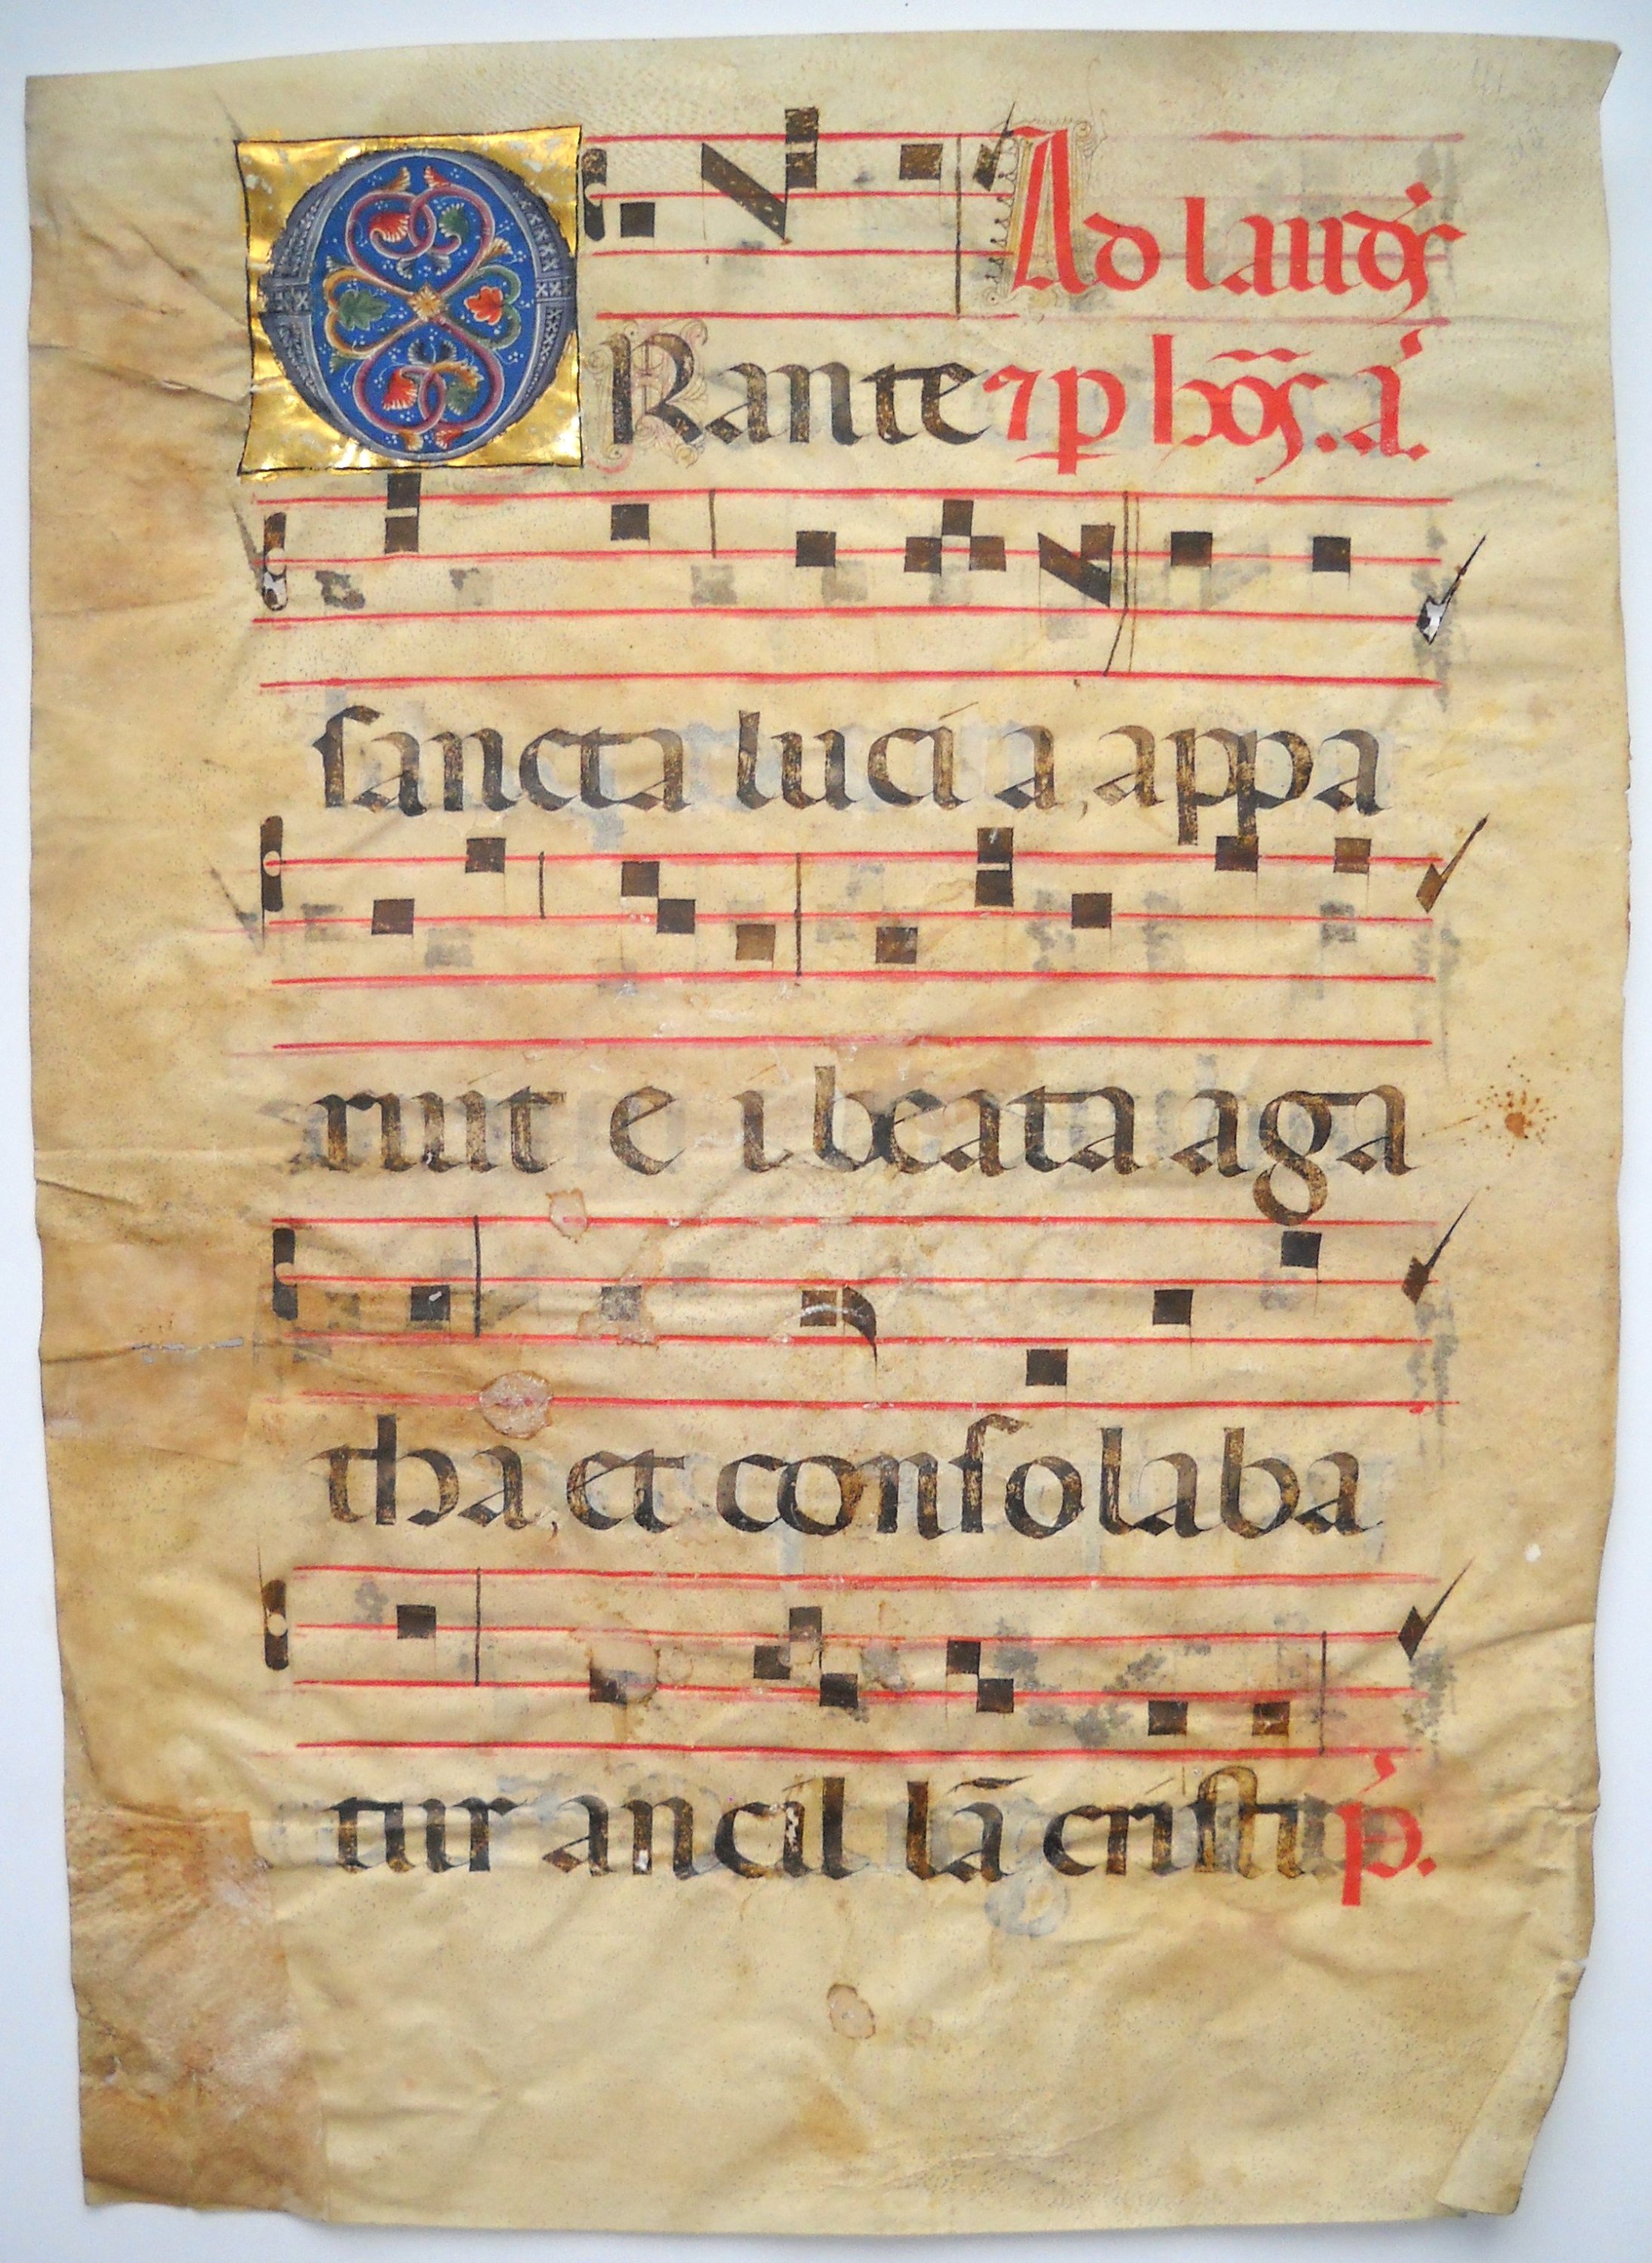 Ad laudes
ORante ⁊ p hoȓs. a.
sancta lucia, appa
ruit e i beata aga
tha, et consolaba
tur ancil lā cristi p̄.